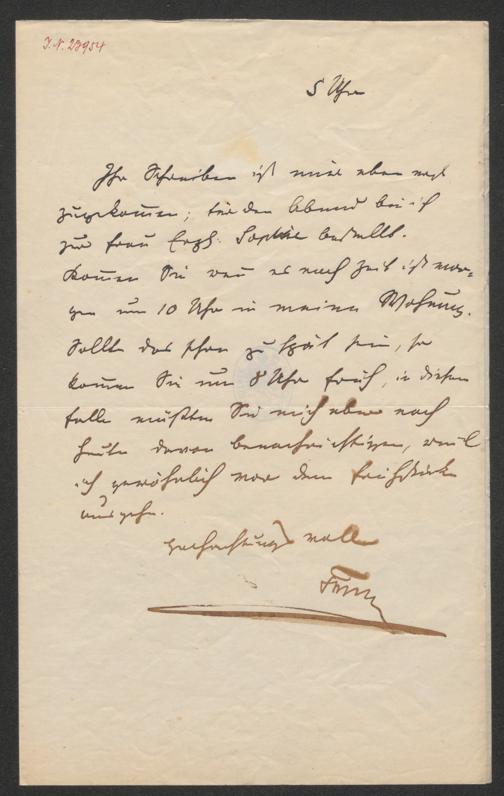 J.N. 23954
5 Uhr
Ihr Schreiben ist mir eben erst
zugekommen; für den Abend bin ich
zur Frau Erzh. Sophie bestellt.
Kommen Sie wenn es noch Zeit ist mor-
gen um 10 Uhr in meine Wohnung.
Sollte das schon zu spät sein, so
kommen Sie um 8 Uhr früh, in diesem
Falle müßten Sie mich aber noch
heute davon benachrichtigen, weil
ich gewöhnlich vor dem Frühstücke
ausgehe.
Hochachtungsvoll